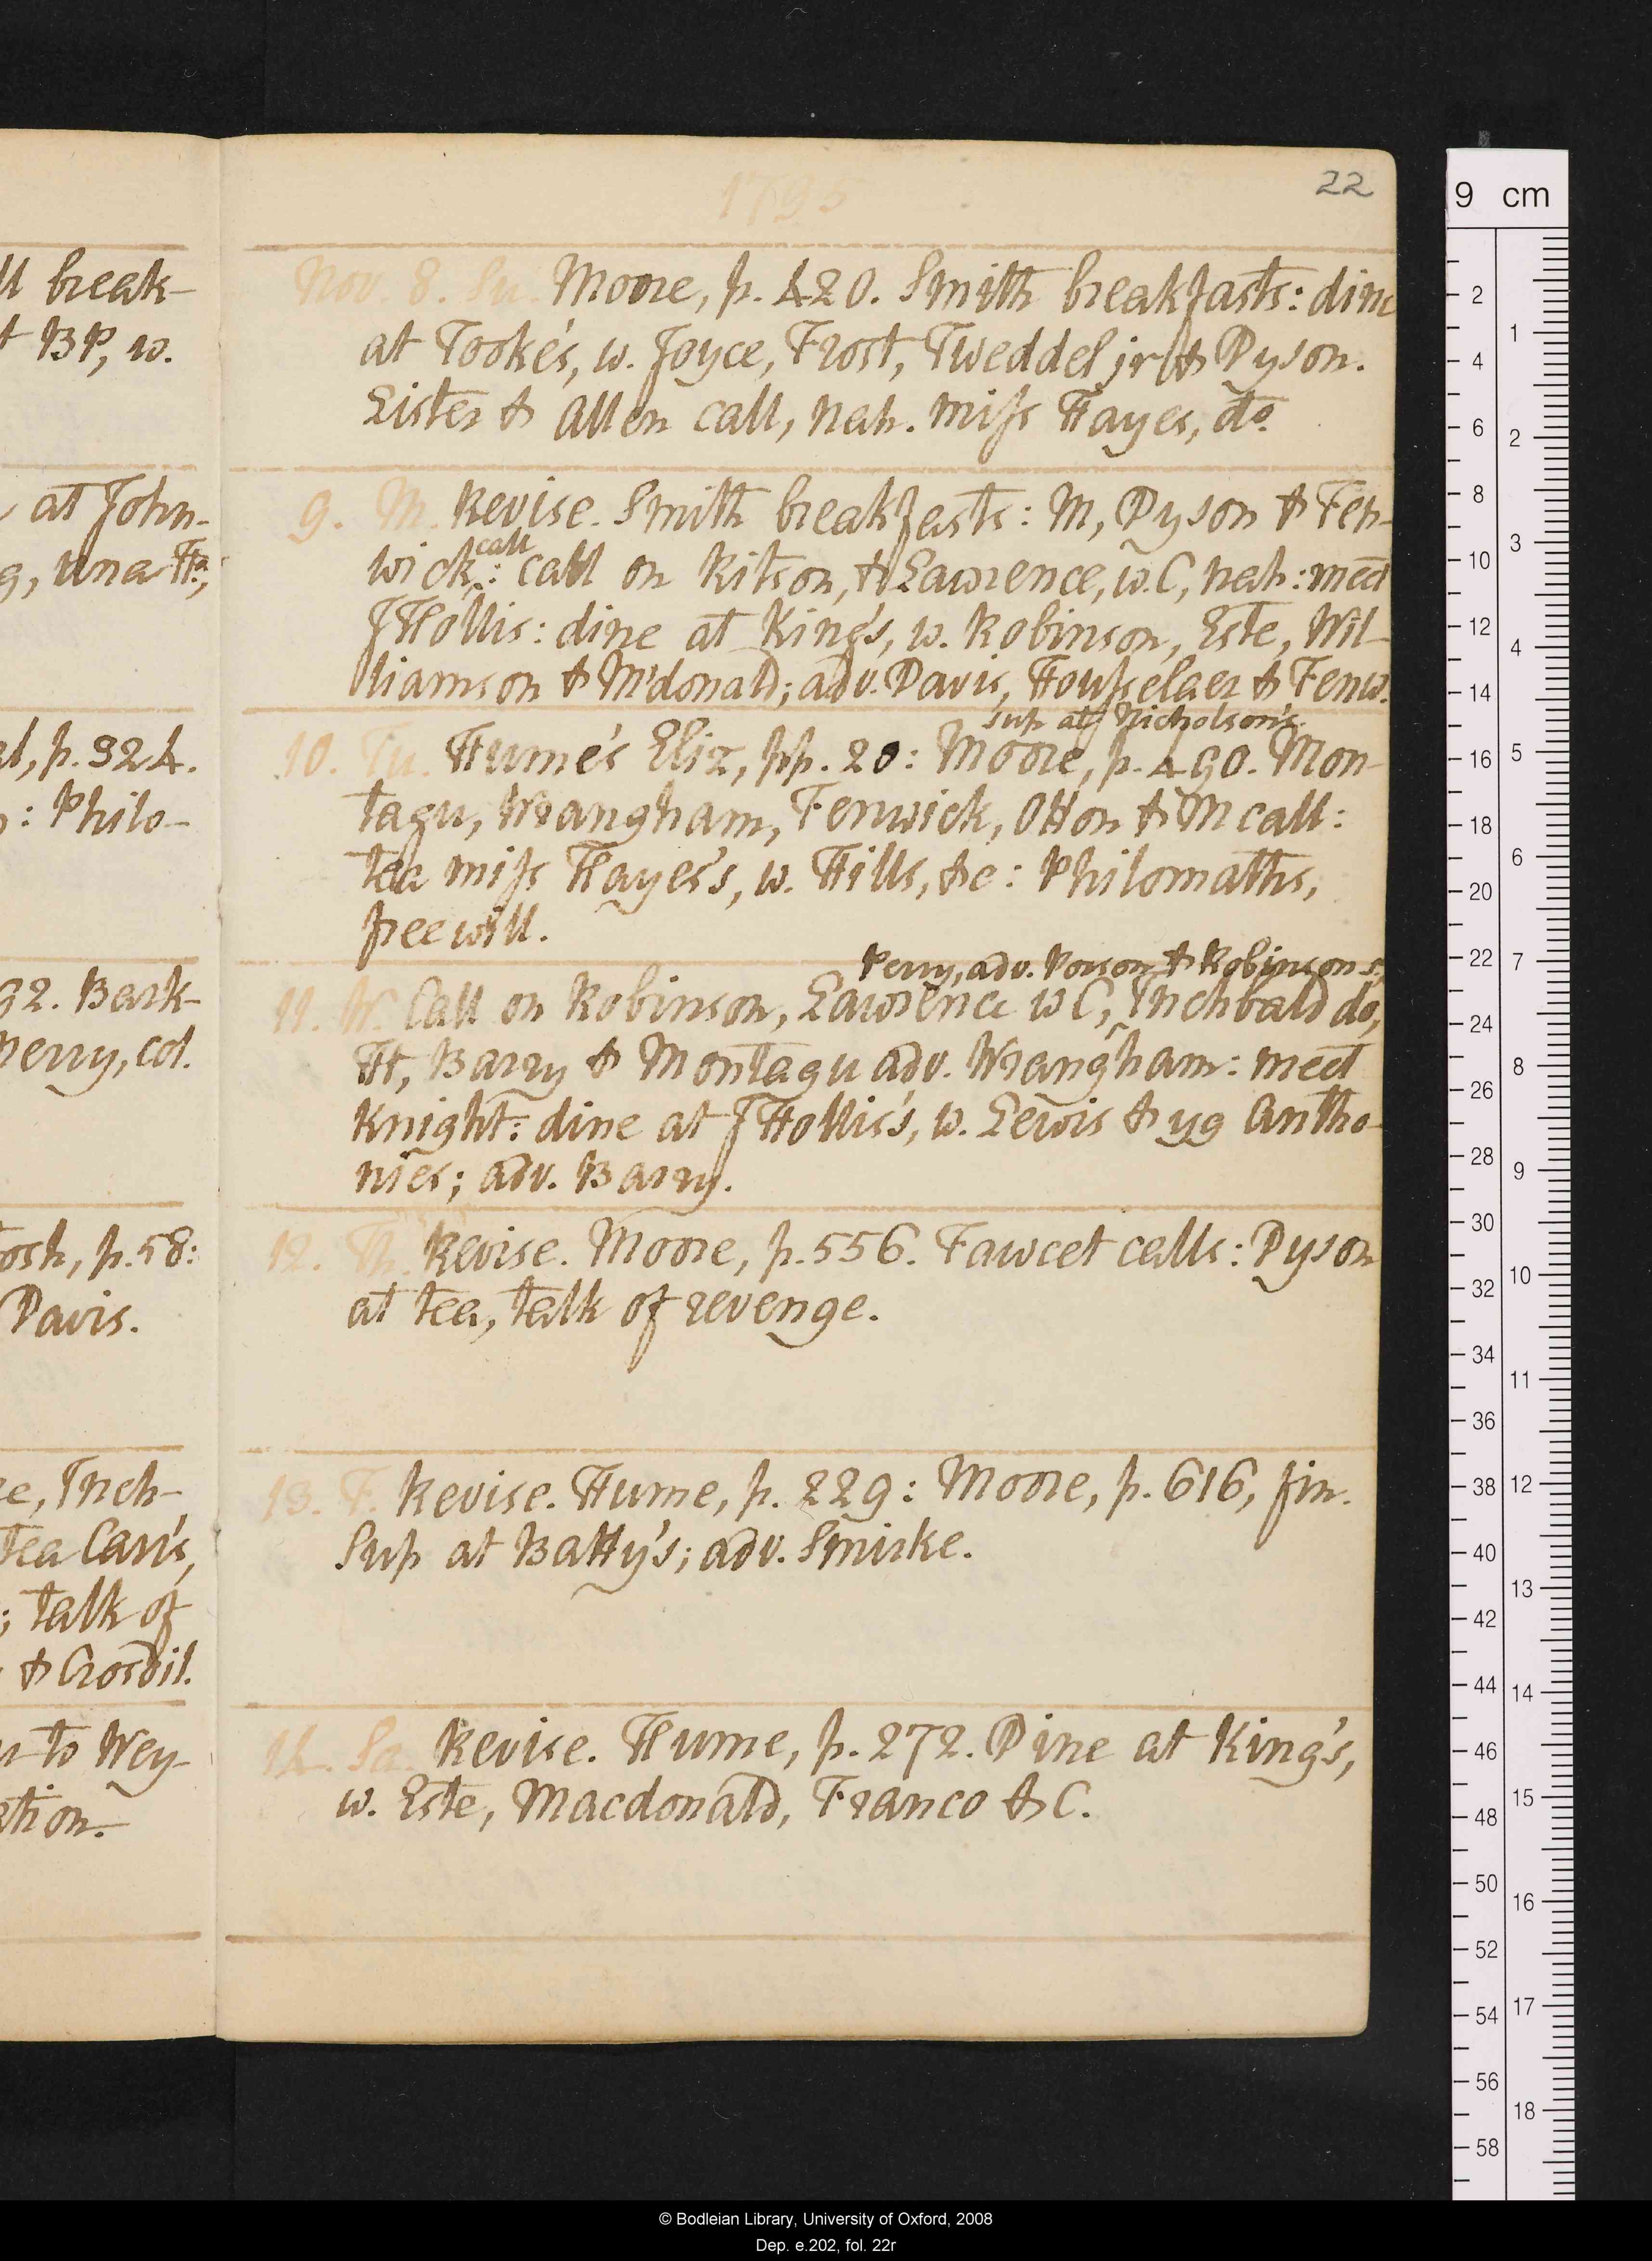 ll break-
t BP, w.
at John-
g, una Ha;
d, p. 324.
: Philo-
92. Bark-
merry, col.
tosh, p. 58:
Davis.
re, Inch-
tea Carr's,
; talk of
& Crosdil.
to Wey-
tion.
1795
22
Nov. 8. Su. Moore, p. 420. Smith breakfasts: dine
at Tooke's, w. Joyce, Frost, Tweddel jr & Dyson.
Lister & Allen call, nah. miss Hayes, do.
9. M. Revise. Smith breakfasts: M, Dyson & Fen-
call
wick: call on Ritson, & Lawrence, w. C, nah: meet
JHollis: dine at King's, w. Robinson, Este, Wil-
liamson & Mcdonald; adv. Davis, Housselaer & Fenw.
sup at Nicholson's.
10. Tu. Hume's Eliz, pp. 20: Moore, p. 490. Mon-
tagu, Wrangham, Fenwick, Otton & M call:
tea miss Hayes's, w. Hills, &c: Philomaths,
free will.
Perry, adv. Porson & Robinsons.
11. W. Call on Robinson, Lawrence w C, Inchbald do,
Ht, Barry & Montagu adv. Wrangham: meet
Knight: dine at JHollis's, w. Lewis & yg Antho-
nies; adv. Barry.
12. Th. Revise. Moore, p. 556. Fawcet calls: Dyson
at tea, talk of revenge.
13. F. Revise. Hume, p. 229: Moore, p. 616, fin.
Sup at Batty's; adv. Smirke.
14. Sa. Revise. Hume, p. 272. Dine at King's,
w. Este, Macdonald, Franco & C.
9 cm
2
4
6
8
10
12
14
16
18
20
22
24
26
28
30
32
34
36
38
40
42
44
46
48
50
52
54
56
58
1
2
3
4
5
6
7
8
9
10
11
12
13
14
15
16
17
18
© Bodleian Library, University of Oxford, 2008
Dep. e.202, fol. 22r